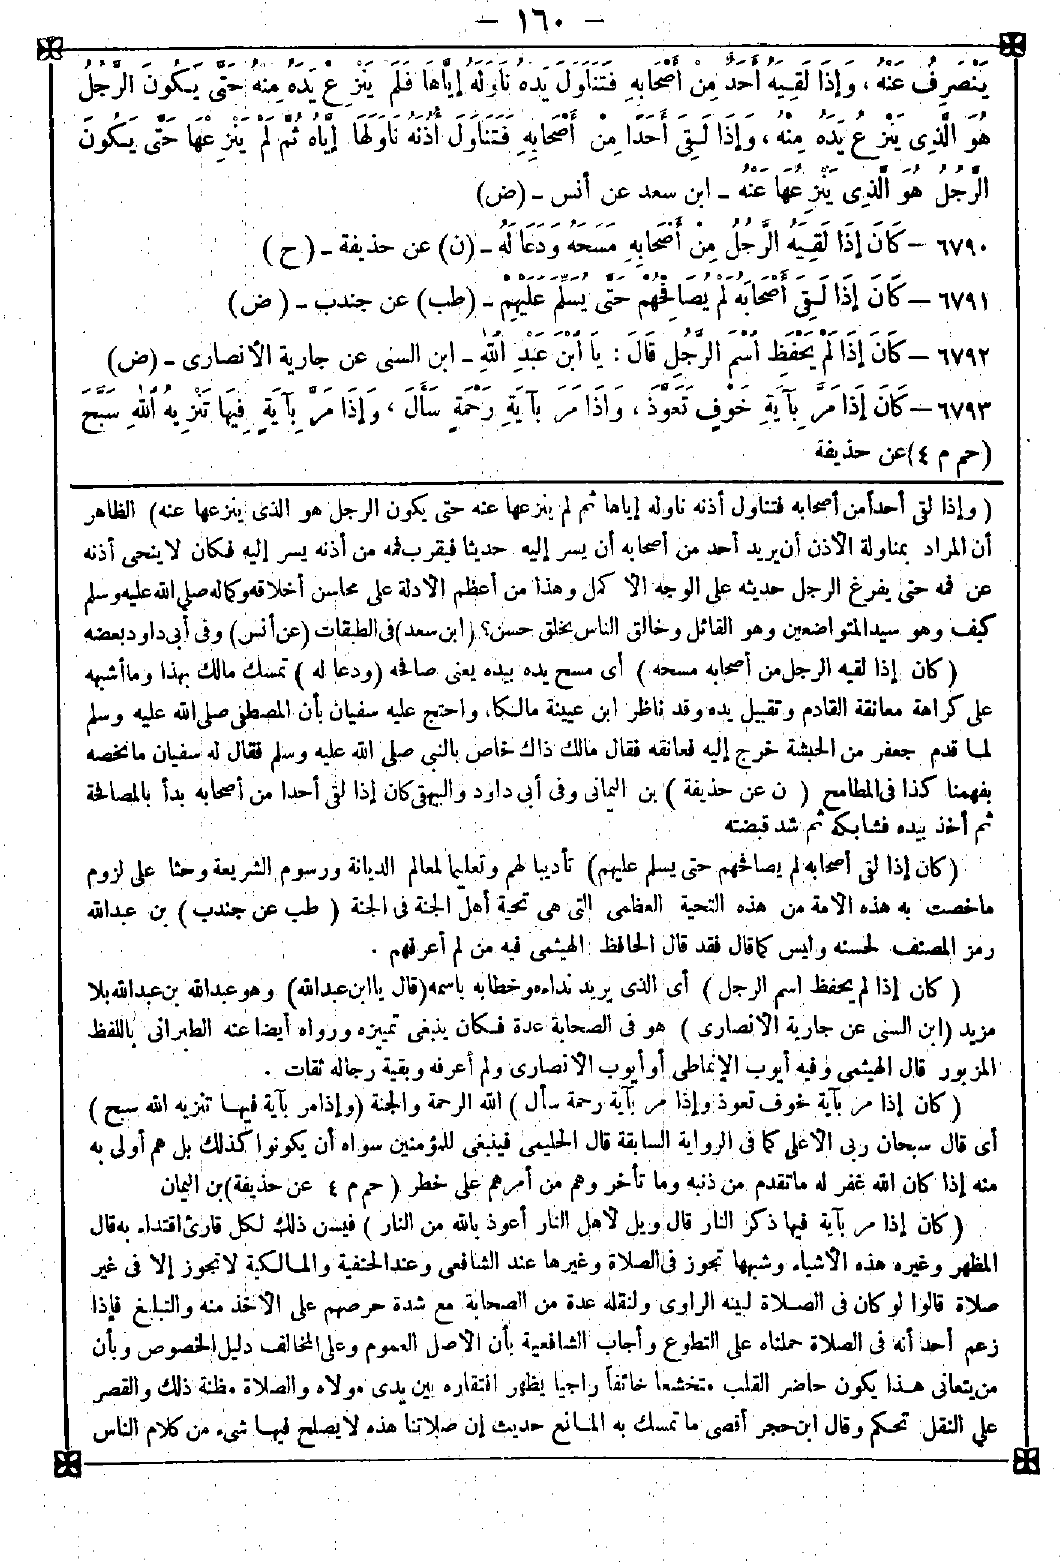 – ١٦٠ –
يَنْصَرِفُ عَنْهُ ، وَإِذَا لَقِيَهُ أَحَدٌ مِنْ أَصْحَابِهِ فَتَنَاوَلَ يَدَهُ نَاوَلَهُ إِيَّاهَا فَلَمْ يَنْزِعْ يَدَهُ مِنْهُ حَتَّى يَكُونَ الرَّجُلُ
هُوَ الَّذِى يَنْزِعُ يَدَهُ مِنْهُ ، وَإِذَا لَقِىَ أَحَدًا مِنْ أَصْحَابِهِ فَتَنَاوَلَ أُذُنَهُ نَاوَلَهَا إِيَّاهُ ثُمَّ لَمْ يَنْزِعْهَا حَتَّى يَكُونَ
الرَّجُلُ هُوَ الَّذِى يَنْزِعُهَا عَنْهُ ـ ابن سعد عن أنس ـ (ض)
٦٧٩٠ – كَانَ إِذَا لَقِيَهُ الرَّجُلُ مِنْ أَصْحَابِهِ مَسَحَهُ وَدَعَا لَهُ ـ (ن) عن حذيفة ـ (ح)
٦٧٩١ – كَانَ إِذَا لَقِىَ أَصْحَابَهُ لَمْ يُصَافِحْهُمْ حَتَّى يُسَلِّمَ عَلَيْهِمْ ـ (طب) عن جندب ـ (ض)
٦٧٩٢ – كَانَ إِذَا لَمْ يَحْفَظِ اسْمَ الرَّجُلِ قَالَ : يَا ابْنَ عَبْدِ اللهِ ـ ابن السنى عن جارية الأنصارى ـ (ض)
٦٧٩٣ – كَانَ إِذَا مَرَّ بِآيَةِ خَوْفٍ تَعَوَّذَ ، وَإِذَا مَرَّ بِآيَةِ رَحْمَةٍ سَأَلَ ، وَإِذَا مَرَّ بِآيَةٍ فِيهَا تَنْزِيهُ اللهِ سَبَّحَ
(حم م ٤) عن حذيفة
( وإذا لقى أحداً من أصحابه فتناول أذنه ناوله إياها ثم لم ينزعها عنه حتى يكون الرجل هو الذى ينزعها عنه) الظاهر
أن المراد بمناولة الأذن أن يريد أحد من أصحابه أن يسر إليه حديثا فيقرب فمه من أذنه يسر إليه فكان لا ينحى أذنه
عن فمه حتى يفرغ الرجل حديثه على الوجه الأكمل وهذا من أعظم الأدلة على محاسن أخلاقه وكماله صلى الله عليه وسلم
كيف وهو سيد المتواضعين وهو القائل وخالق الناس بخلق حسن؟ (ابن سعد) فى الطبقات (عن أنس) وفى أبى داود بعضه
( كان إذا لقيه الرجل من أصحابه مسحه ) أى مسح يده بيده يعنى صافحه (ودعا له ) تمسك مالك بهذا وما أشبهه
على كراهة معانقة القادم وتقبيل يده وقد ناظر ابن عيينة مالكا، واحتج عليه سفيان بأن المصطفى صلى الله عليه وسلم
لما قدم جعفر من الحبشة خرج إليه فعانقه فقال مالك ذاك خاص بالنبى صلى الله عليه وسلم فقال له سفيان ما نخصه
بفهمنا كذا فى المطامح ( ن عن حذيفة ) بن اليمانى وفى أبى داود والبيهقى كان إذا لقى أحدا من أصحابه بدأ بالمصالحة
ثم أخذ بيده فشابكه ثم شد قبضته
(كان إذا لقى أصحابه لم يصافحهم حتى يسلم عليهم) تأديبا لهم وتعليما لمعالم الديانة ورسوم الشريعة وحثا على لزوم
ما خصت به هذه الأمة من هذه التحية العظمى التى هى تحية أهل الجنة فى الجنة ( طب عن جندب ) بن عبد الله
رمز المصنف لحسنه وليس كما قال فقد قال الحافظ الهيثمى فيه من لم أعرفهم .
( كان إذا لم يحفظ اسم الرجل ) أى الذى يريد نداءه وخطابه باسمه (قال يا ابن عبد الله) وهو عبد الله بن عبد الله بلا
مزيد (ابن السنى عن جارية الأنصارى ) هو فى الصحابة عدة فكان ينبغى تمييزه ورواه أيضا عنه الطبرانى باللفظ
المزبور قال الهيثمى وفيه أيوب الإنماطى أو أيوب الأنصارى ولم أعرفه وبقية رجاله ثقات .
( كان إذا مر بآية خوف تعوذ وإذا مر بآية رحمة سأل ) الله الرحمة والجنة (وإذا مر بآية فيها تنزيه الله سبح )
أى قال سبحان ربى الأعلى كما فى الرواية السابقة قال الحليمى فينبغى للمؤمنين سواه أن يكونوا كذلك بل هم أولى به
منه إذا كان الله غفر له ما تقدم من ذنبه وما تأخر وهم من أمرهم على خطر ( حم م ٤ عن حذيفة) بن اليمان
( كان إذا مر بآية فيها ذكر النار قال ويل لأهل النار أعوذ بالله من النار ) فيسن ذلك لكل قارئ اقتداء به قال
المظهر وغيره هذه الأشياء وشبهها تجوز فى الصلاة وغيرها عند الشافعى وعند الحنفية والمالكية لا تجوز إلا فى غير
صلاة قالوا لو كان فى الصلاة لبينه الراوى ولنقله عدة من الصحابة مع شدة حرصهم على الأخذ منه والتبليغ فإذا
زعم أحد أنه فى الصلاة حملناه على التطوع وأجاب الشافعية بأن الأصل العموم وعلى المخالف دليل الخصوص وبأن
من يتعانى هذا يكون حاضر القلب متخشعا خائفاً راجيا يظهر افتقاره بين يدى مولاه والصلاة مظنة ذلك والقصر
على النفل تحكم وقال ابن حجر أقصى ما تمسك به المانع حديث إن صلاتنا هذه لا يصلح فيها شىء من كلام الناس